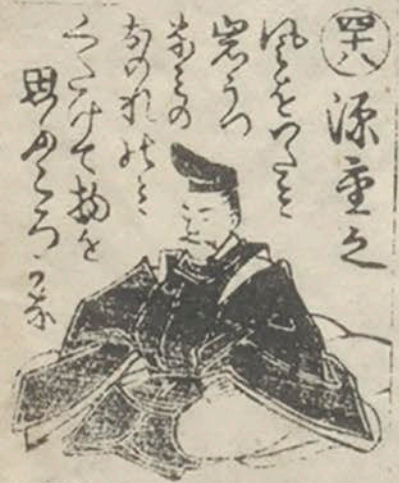 四十八
源重之
風をいたミ
岩うつ
なみの
おのれのミ
くたけて物を
思ふころかな